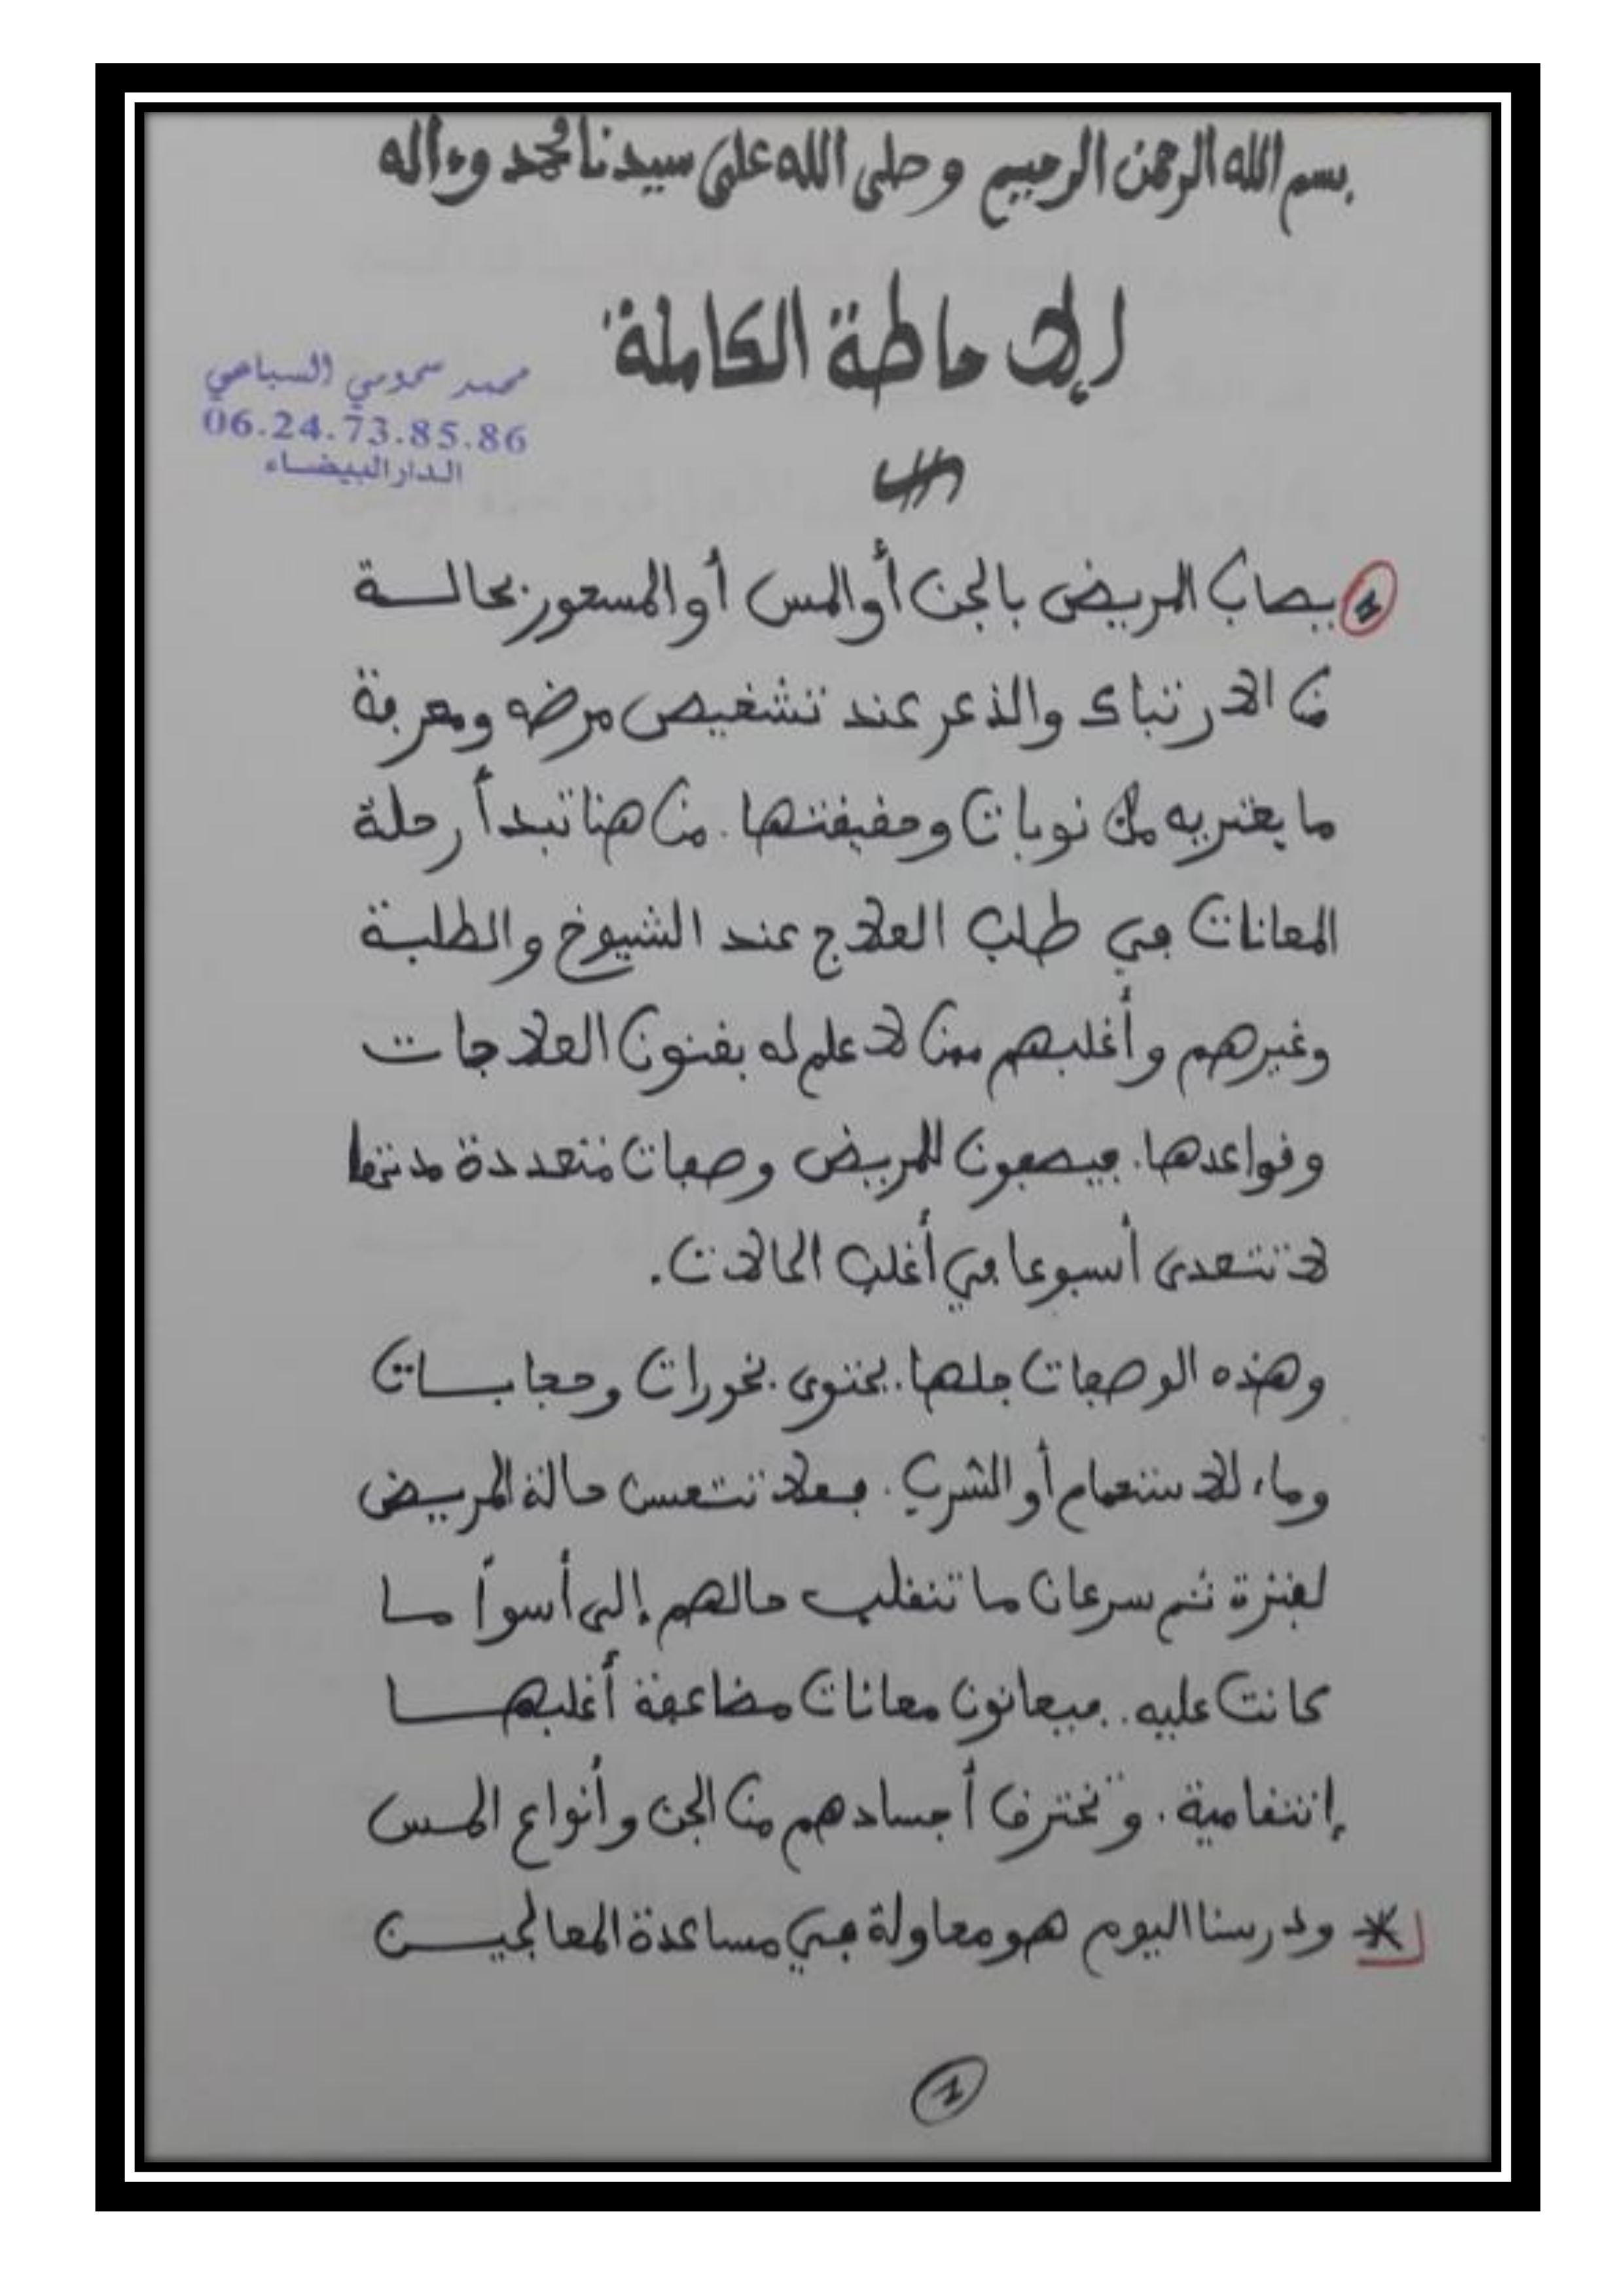 بسم الله الرحمن الرحيم وصلى الله على سيدنا محمد وءاله
الإحاطة الكاملة
محمد سموسي السباعي
06.24.73.85.86
الدار البيضاء
1 يصاب المريض بالجن أو المس أو المسحور بحالة
من الارتباك والذعر عند تشخيص مرضه ومعرفة
ما يعتريه من نوبات وحقيقتها. من هنا تبدأ رحلة
المعانات في طلب العلاج عند الشيوخ والطلبة
وغيرهم وأغلبهم ممن لا علم له بفنون العلاجات
وقواعدها. فيصفون للمريض وصفات متعددة مدتها
لا تتعدى أسبوعا في أغلب الحالات.
وهذه الوصفات جلها. يحتوى بخورات وحجابات
وماء للاستحمام أو الشرب. فعلا تتحسن حالة المريض
لفترة ثم سرعان ما تنقلب حالهم إلى أسوأ ما
كانت عليه. فيعانون معانات مضاعفة أغلبها
إنتقامية. وتحترق أجسادهم من الجن وأنواع المس
* ودرسنا اليوم هو محاولة في مساعدة المعالجين
1